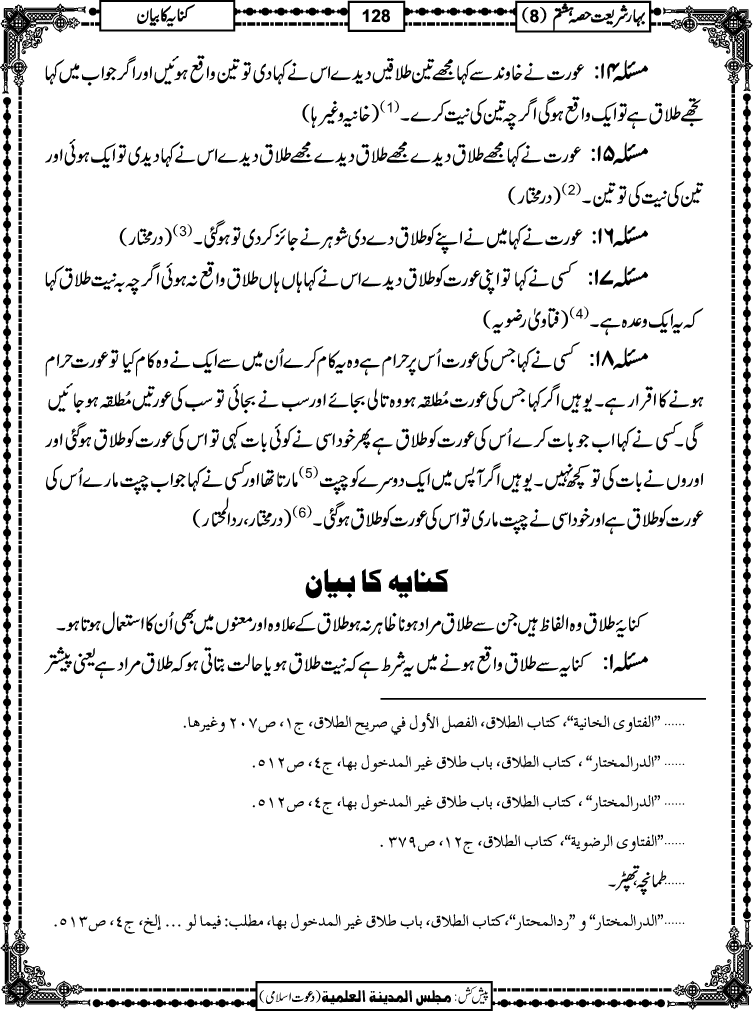 بہار شریعت حصہ ہشتم (8)
128
کنایہ کا بیان
مسئلہ ۱۴: عورت نے خاوند سے کہا مجھے تین طلاقیں دیدے اس نے کہا دی تو تین واقع ہوئیں اور اگر جواب میں کہا
تجھے طلاق ہے تو ایک واقع ہوگی اگرچہ تین کی نیت کرے۔ (1) (خانیہ وغیرہا)
مسئلہ ۱۵: عورت نے کہا مجھے طلاق دیدے مجھے طلاق دیدے مجھے طلاق دیدے اس نے کہا دیدی تو ایک ہوئی اور
تین کی نیت کی تو تین۔ (2) (درمختار)
مسئلہ ۱۶: عورت نے کہا میں نے اپنے کو طلاق دے دی شوہر نے جائز کردی تو ہوگئی۔ (3) (درمختار)
مسئلہ ۱۷: کسی نے کہا تو اپنی عورت کو طلاق دیدے اس نے کہا ہاں ہاں طلاق واقع نہ ہوئی اگرچہ بہ نیت طلاق کہا
کہ یہ ایک وعدہ ہے۔ (4) (فتاویٰ رضویہ)
مسئلہ ۱۸: کسی نے کہا جس کی عورت اُس پر حرام ہے وہ یہ کام کرے اُن میں سے ایک نے وہ کام کیا تو عورت حرام
ہونے کا اقرار ہے۔ یوہیں اگر کہا جس کی عورت مُطلقہ ہو وہ تالی بجائے اور سب نے بجائی تو سب کی عورتیں مُطلقہ ہو جائیں
گی۔ کسی نے کہا اب جو بات کرے اُس کی عورت کو طلاق ہے پھر خود اسی نے کوئی بات کہی تو اس کی عورت کو طلاق ہوگئی اور
اوروں نے بات کی تو کچھ نہیں۔ یوہیں اگر آپس میں ایک دوسرے کو چپت (5) مارتا تھا اور کسی نے کہا جو اب چپت مارے اُس کی
عورت کو طلاق ہے اور خود اسی نے چپت ماری تو اس کی عورت کو طلاق ہوگئی۔ (6) (درمختار، ردالمحتار)
کنایہ کا بیان
کنایۂ طلاق وہ الفاظ ہیں جن سے طلاق مراد ہونا ظاہر نہ ہو طلاق کے علاوہ اور معنوں میں بھی اُن کا استعمال ہوتا ہو۔
مسئلہ ۱: کنایہ سے طلاق واقع ہونے میں یہ شرط ہے کہ نیت طلاق ہو یا حالت بتاتی ہو کہ طلاق مراد ہے یعنی پیشتر
...... "الفتاوى الخانية"، كتاب الطلاق، الفصل الأول في صريح الطلاق، ج١، ص٢٠٧ وغيرها.
...... "الدرالمختار" ، كتاب الطلاق، باب طلاق غير المدخول بها، ج٤، ص٥١٢.
...... "الدرالمختار" ، كتاب الطلاق، باب طلاق غير المدخول بها، ج٤، ص٥١٢.
......"الفتاوى الرضوية"، كتاب الطلاق، ج١٢، ص٣٧٩ .
...... طمانچہ، تھپڑ۔
......"الدرالمختار" و "ردالمحتار"،كتاب الطلاق، باب طلاق غير المدخول بها، مطلب: فيما لو ... إلخ، ج٤، ص٥١٣.
پیش کش: مجلس المدینة العلمیة (دعوت اسلامی)